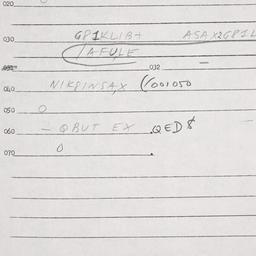 020
030 GP1KLIB+ ASAX2GP1L
/AFULE
032
040 NIKPINSAX (/001050
050 0
060 - QBUT EX .QED $
070 0 .